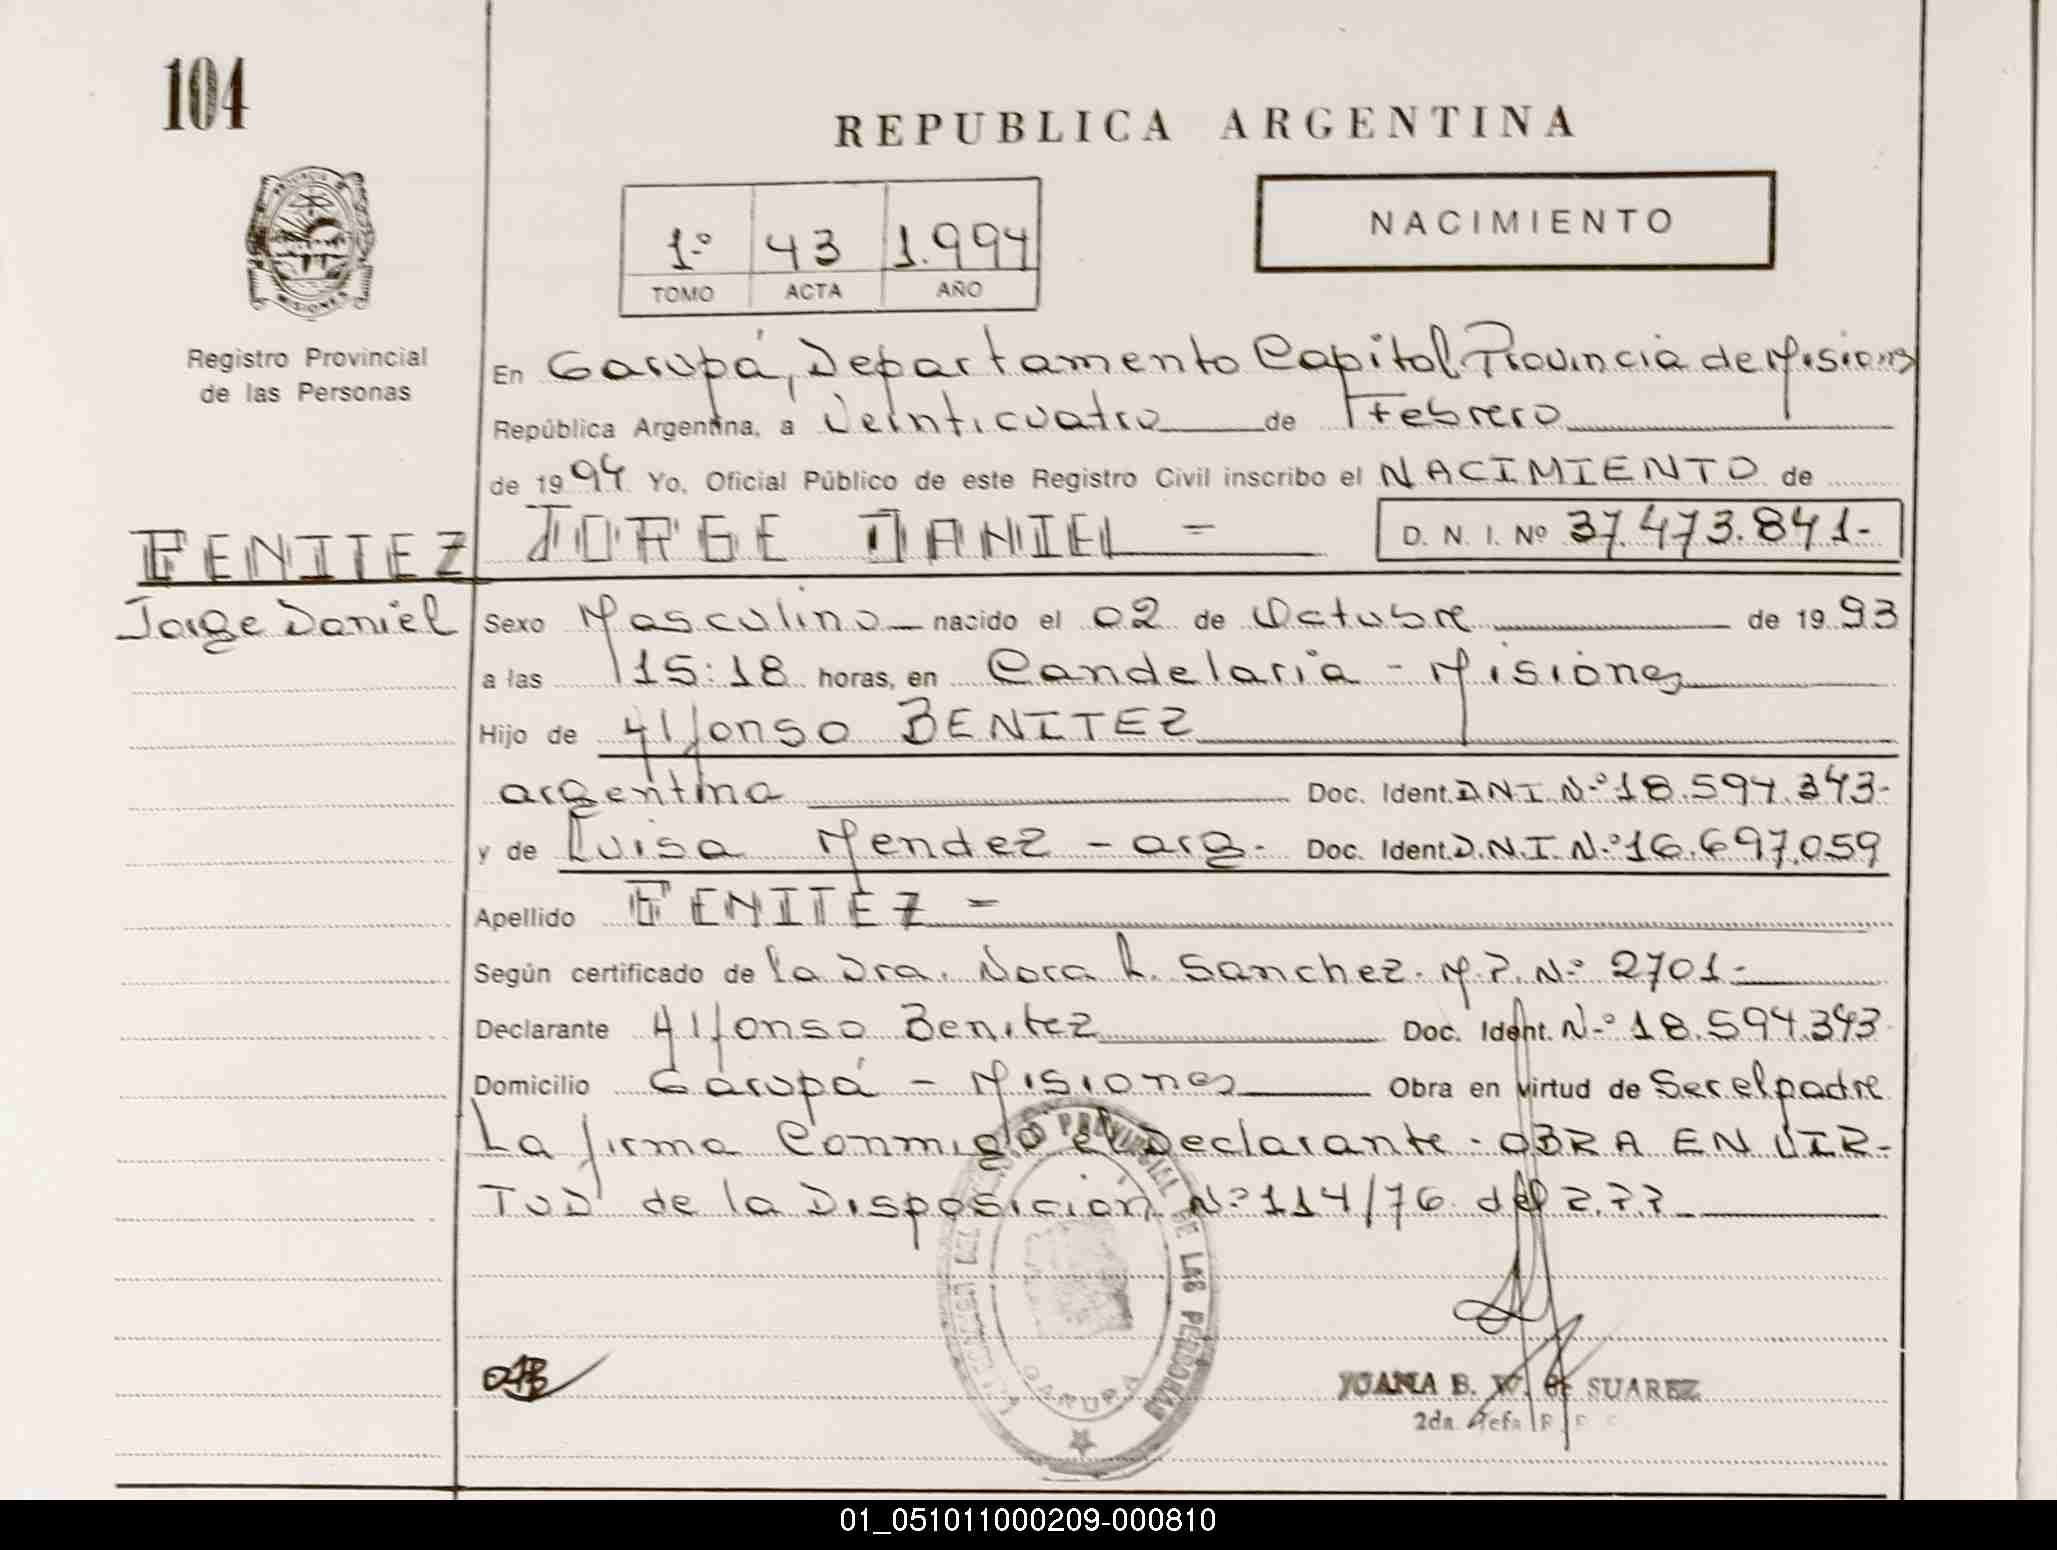 104
REPUBLICA ARGENTINA
PROVINCIA DE
MISIONES
1º 43 1.994
TOMO ACTA AÑO
NACIMIENTO
Registro Provincial
de las Personas
En Garupá, Departamento Capital Provincia de Misiones
República Argentina, a Veinticuatro de Febrero
de 1994 Yo, Oficial Público de este Registro Civil inscribo el NACIMIENTO de
BENITEZ JORGE DANIEL = D. N. I. Nº 37.473.841-
Jorge Daniel
Sexo Masculino nacido el 02 de Octubre de 1993
a las 15:18 horas, en Candelaria - Misiones
Hijo de Alfonso BENITEZ
argentina Doc. Ident. DNI Nº 18.594.343-
y de Luisa Mendez - arg. Doc. Ident. D.N.I. Nº 16.697.059
Apellido BENITEZ =
Según certificado de la Dra. Nora L. Sanchez. M.P. Nº 2701-
Declarante Alfonso Benitez Doc. Ident. Nº 18.594.343
Domicilio Garupá - Misiones Obra en virtud de Ser el padre
La firma Conmigo el Declarante - OBRA EN VIR-
TUD de la Disposición Nº 114/76 del
PROVINCIAL DE LAS PERSONAS
GARUPA
JUANA B. W. de SUAREZ
2da. Jefa R
01_051011000209-000810